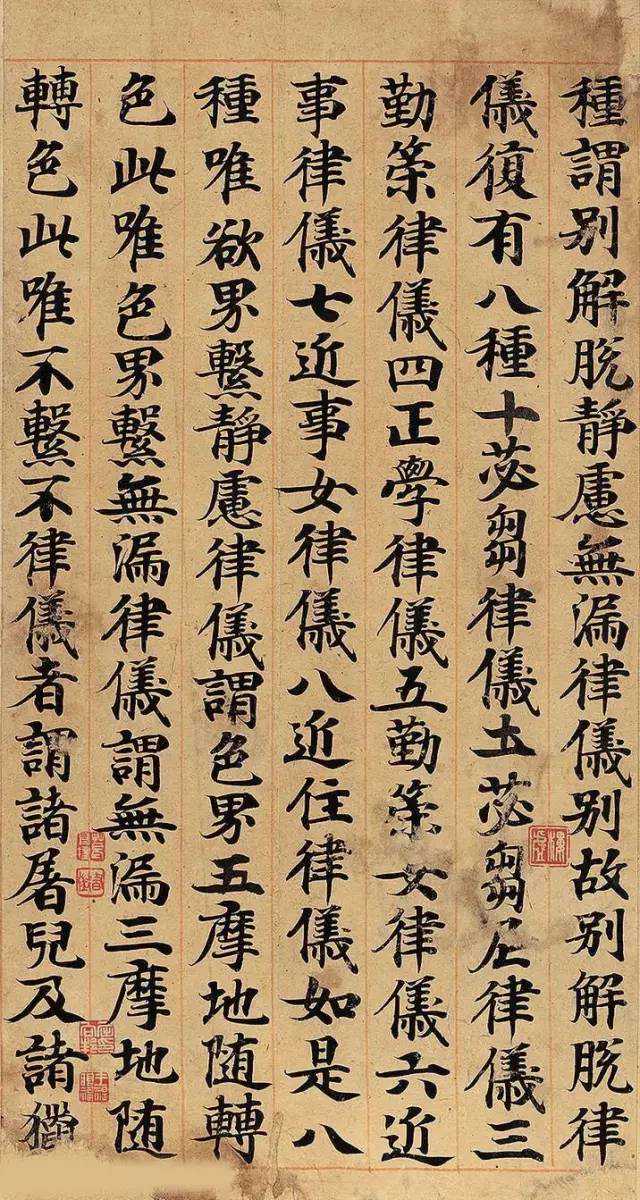 種謂別解脫靜慮無漏律儀別故別解脫律
儀復有八種十苾芻律儀土苾芻尼律儀三
勤策律儀四正學律儀五勤策女律儀六近
事律儀七近事女律儀八近住律儀如是八
種唯欲界繫靜慮律儀謂色界五摩地随轉
色此唯色界繫無漏律儀謂無漏三摩地随
轉色此唯不繫不律儀者謂諸屠兒及諸獵